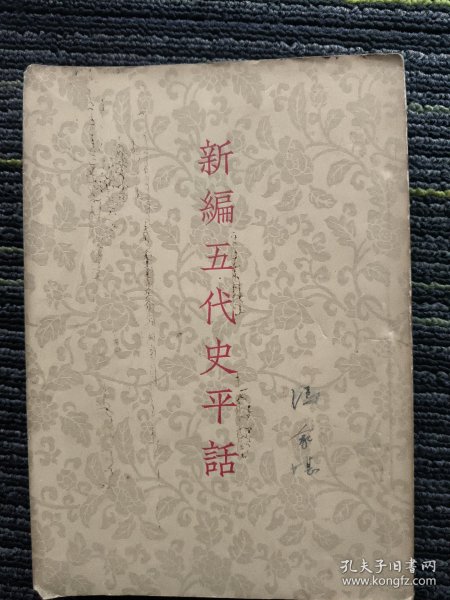 新編五代史平話
孔夫子旧书网
www.kongfz.com